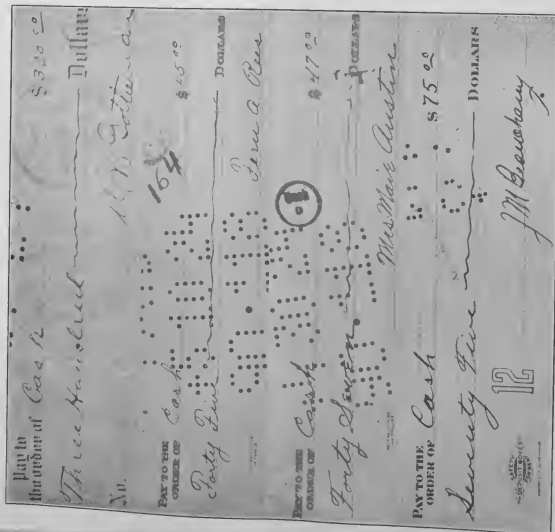 Pay to
the order of Cash $300 00
Three Hundred Dollars
No.
164
PAY TO THE
ORDER OF Cash $45 00
Forty Five DOLLARS
Fern A Rees
1.
PAY TO THE
ORDER OF Cash $47 00
Forty Seven DOLLARS
Mrs Maie Austin
PAY TO THE
ORDER OF Cash $75 00
Seventy Five DOLLARS
12
J M Beauchamp